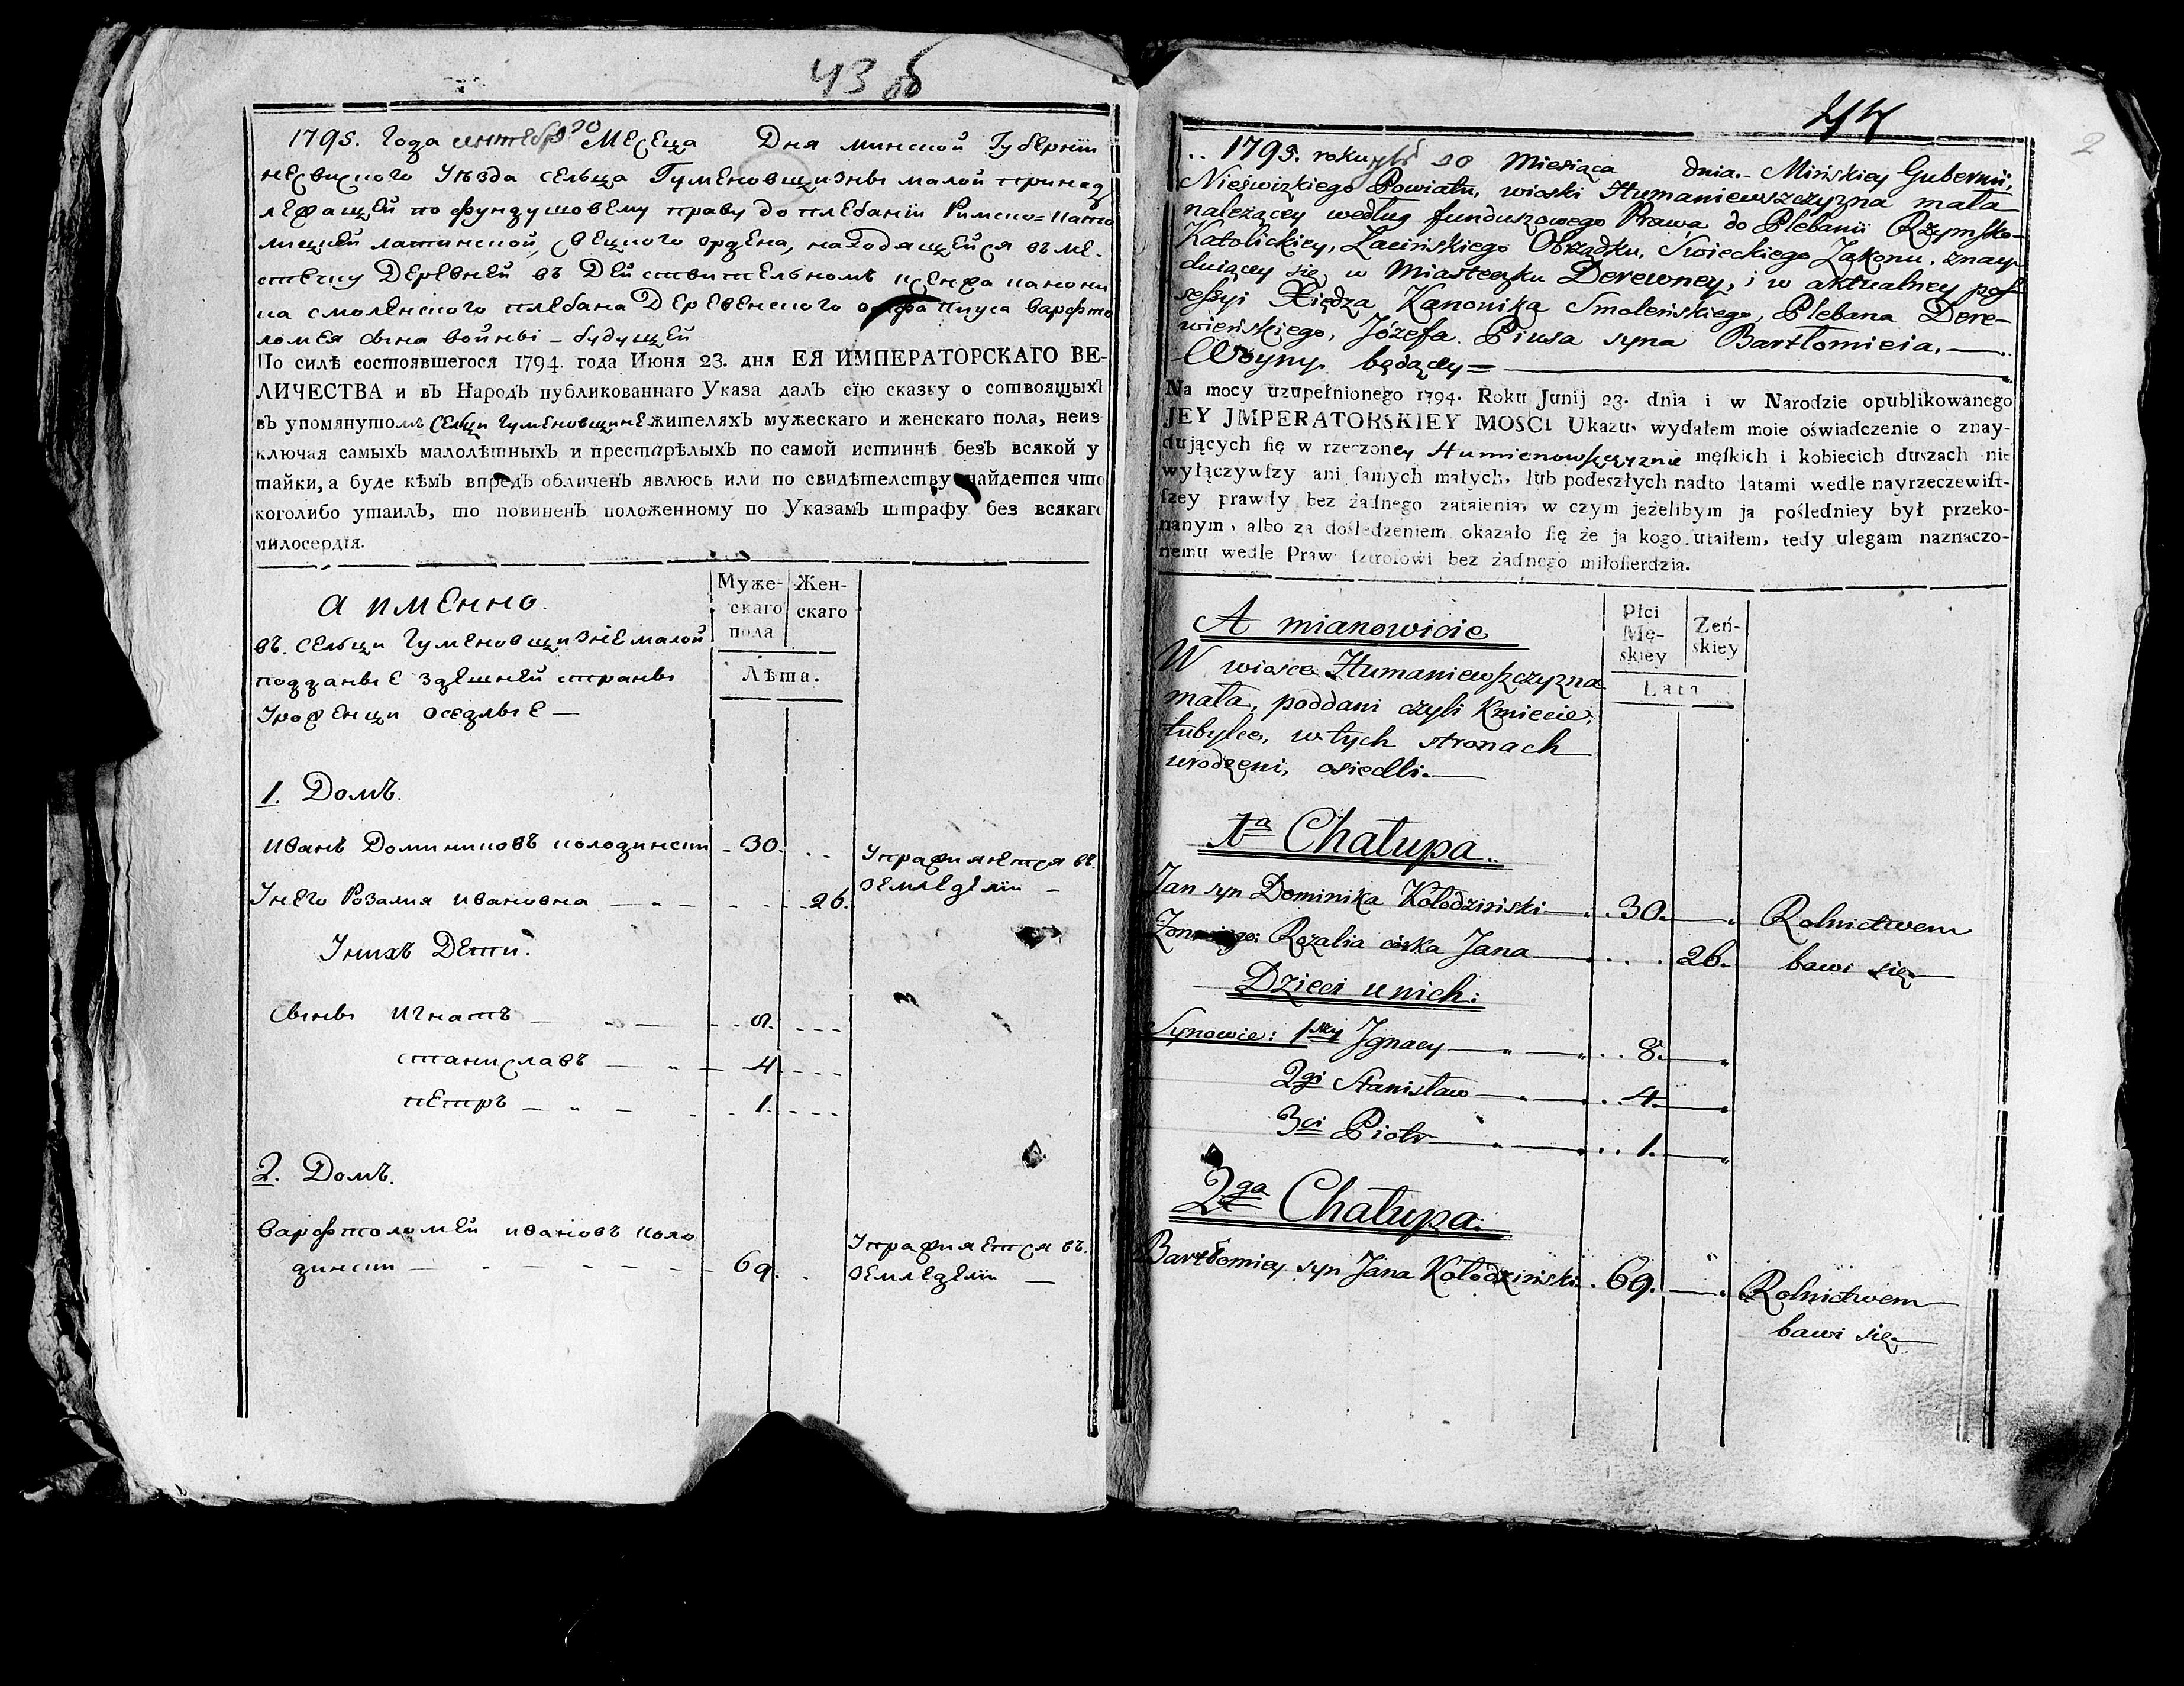 43 об
1795. года сентебр 30 месеца Дня минской Губернiи
несвиского уезда сельца Гуменовщизны малой принад
лежащей по фундушовему праву до плебанiи Римско=като
лицкей латинской, свецкого ордена, находящейся въ ме-
стечку Деревней въ Действительномъ ксенжа канони
ка смоленского плебана Деревенского Пиуса Варфто
ломея сына войны – будущей
По силѣ состоявшегося 1794. года Июня 23. дня ЕЯ ИМПЕРАТОРСКАГО ВЕ-
ЛИЧЕСТВА и въ Народъ публикованнаго Указа далъ сїю сказку о сотвоящыхъ
въ упомянутомъ Сельци Гуменовщине жителяхъ мужескаго и женскаго пола, неиз
ключая самыхъ малолѣтныхъ и престарѣлыхъ по самой истиннѣ безъ всякой у
тайки, а буде кѣмъ впредъ обличенъ явлюсь или по свидѣтелству найдется что
коголибо утаилъ, то повиненъ положенному по Указамъ штрафу без всякаго
милосердїя.
а именно.
Муже-
скаго
пола
Жен-
скаго
Лѣта.
въ сельци Гуменовщизне малой
подданые здешней страны
Уроженци оседлые —
1. Домъ.
Иванъ Доминиковъ колодински - 30. . . Упражняется въ
земледелiи —
У него Розалия Ивановна — 26.
У нихъ Дети.
Сыны Игнатъ — 8.
Станиславъ — 4
Петръ — 1.
2. Домъ.
Варфтоломей Ивановъ коло
дински — 69. Упражняется въ
земледелiи —
44
2
1795. roku 30 Miesiąca dnia.- Mińskiey Gubernii,
Nieświzkiego Powiatu, wioski Humaniewszczyzna mała
należącey według funduszowego Prawa do Plebanii Rzymsko-
Katolickiey, Łacińskiego Obrządku, Świeckiego Zakonu, znay-
duiącey się w Miasteczku Derewney, i w aktualney pos-
sessyi Xiędza Kanonika Smoleńskiego, Plebana Dere-
wieńskiego, Józefa Piusa syna Bartłomieia.—
Woyny będący=
Na mocy uzupełnionego 1794. Roku Junij 23. dnia i w Narodzie opublikowanego
JEY JMPERATORSKIEY MOSCI Ukazu, wydałem moie oświadczenie o znay-
dujących się w rzeczoney Humienowszczyznie męskich i kobiecich duszach nie
wyłączywszy ani samych małych, lub podeszłych nadto latami wedle nayrzeczewist-
szey prawdy bez żadnego zataienia, w czym jeżelibym ja pośledniey był przeko-
nanym, albo za dośledzeniem okazało się że ja kogo utaiłem, tedy ulegam naznaczo-
nemu wedle Praw sztrofowi bez żadnego miłosierdzia.
A mianowicie
Płci
Mę-
skiey
Zeń-
skiey
Lata
W wiosce Humaniewszczyzna
mała, poddani czyli Kmiecie,
tubylce, w tych stronach
urodzeni, osiedli.—
1a Chałupa.
Jan syn Dominika Kołodziński — 30. — Rolnictwem
Żona jego: Rozalia córka Jana — 26. bawi się —
Dzieci u nich:
Synowie: 1szy Jgnacy — 8. —
2gi Stanisław — 4. —
3ci Piotr — 1. —
2ga Chałupa.
Bartłomiey syn Jana Kołodziński. 69. — Rolnictwem
bawi się —